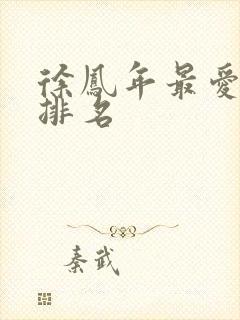 徐鳳年最愛
排名
秦武